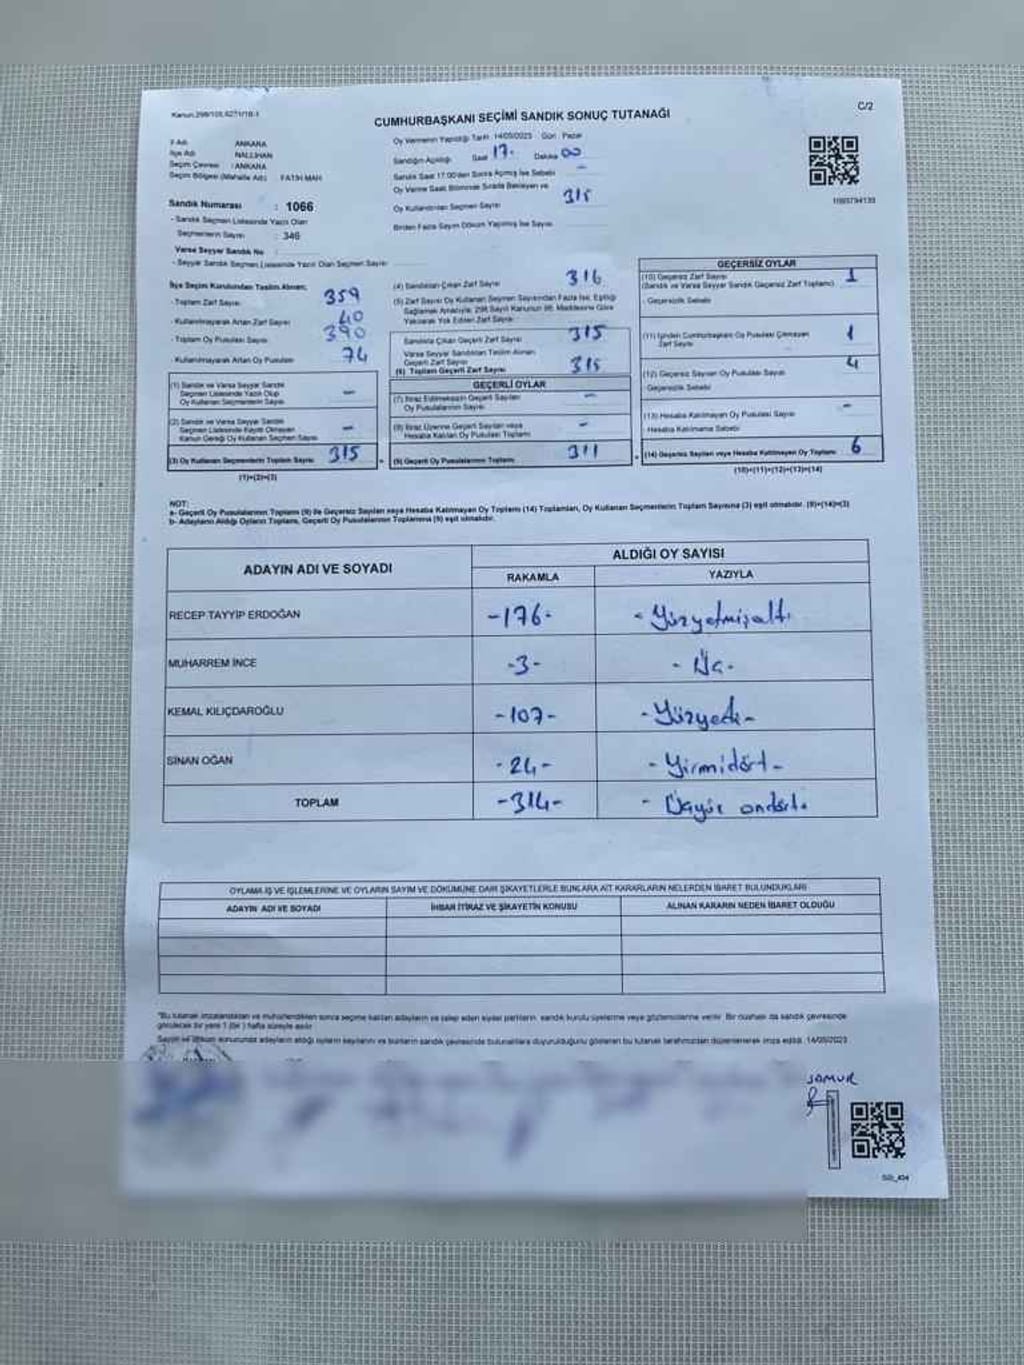 Kanun:298/105,6271/18-1
C/2
CUMHURBAŞKANI SEÇİMİ SANDIK SONUÇ TUTANAĞI
İl Adı ANKARA
İlçe Adı NALLIHAN
Seçim Çevresi : ANKARA
Seçim Bölgesi (Mahalle Adı) FATİH MAH
Oy Vermenin Yapıldığı Tarih 14/05/2023 Gün: Pazar
Sandığın Açıldığı Saat 17. Dakika 00
Sandık Saat 17:00'den Sonra Açılmış İse Sebebi -
Oy Verme Saati Bitiminde Sırada Bekleyen ve
Oy Kullandırılan Seçmen Sayısı 315
Birden Fazla Sayım Döküm Yapılmış İse Sayısı
Sandık Numarası : 1066
- Sandık Seçmen Listesinde Yazılı Olan
Seçmenlerin Sayısı : 346
Varsa Seyyar Sandık No :
- Seyyar Sandık Seçmen Listesinde Yazılı Olan Seçmen Sayısı:
İlçe Seçim Kurulundan Teslim Alınan;
- Toplam Zarf Sayısı 359
- Kullanılmayarak Artan Zarf Sayısı 40
- Toplam Oy Pusulası Sayısı 390
- Kullanılmayarak Artan Oy Pusulası 74
(1) Sandık ve Varsa Seyyar Sandık
Seçmen Listesinde Yazılı Olup
Oy Kullanan Seçmenlerin Sayısı -
(2) Sandık ve Varsa Seyyar Sandık
Seçmen Listesinde Kayıtlı Olmayan
Kanun Gereği Oy Kullanan Seçmen Sayısı -
(3) Oy Kullanan Seçmenlerin Toplam Sayısı 315
(1)+(2)=(3)
(4) Sandıktan Çıkan Zarf Sayısı 316
(5) Zarf Sayısı Oy Kullanan Seçmen Sayısından Fazla İse, Eşitliği
Sağlamak Amacıyla, 298 Sayılı Kanunun 98. Maddesine Göre
Yakılarak Yok Edilen Zarf Sayısı
Sandıkta Çıkan Geçerli Zarf Sayısı 315
Varsa Seyyar Sandıktan Teslim Alınan
Geçerli Zarf Sayısı
(6) Toplam Geçerli Zarf Sayısı 315
GEÇERLİ OYLAR
(7) İtiraz Edilmeksizin Geçerli Sayılan
Oy Pusulalarının Sayısı -
(8) İtiraz Üzerine Geçerli Sayılan veya
Hesaba Katılan Oy Pusulası Toplamı -
(9) Geçerli Oy Pusulalarının Toplamı 311
1093794139
GEÇERSİZ OYLAR
(10) Geçersiz Zarf Sayısı 1
(Sandık ve Varsa Seyyar Sandık Geçersiz Zarf Toplamı)
- Geçersizlik Sebebi
(11) İçinden Cumhurbaşkanı Oy Pusulası Çıkmayan
Zarf Sayısı 1
(12) Geçersiz Sayılan Oy Pusulası Sayısı 4
Geçersizlik Sebebi
(13) Hesaba Katılmayan Oy Pusulası Sayısı -
- Hesaba Katılmama Sebebi
(14) Geçersiz Sayılan veya Hesaba Katılmayan Oy Toplamı 6
(10)+(11)+(12)+(13)=(14)
NOT:
a- Geçerli Oy Pusulaları Toplamı (9) ile Geçersiz Sayılan veya Hesaba Katılmayan Oy Toplamı (14) Toplamları, Oy Kullanan Seçmenlerin Toplam Sayısına (3) eşit olmalıdır. (9)+(14)=(3)
b- Adayların Aldığı Oyların Toplamı, Geçerli Oy Pusulalarının Toplamına (9) eşit olmalıdır.
ADAYIN ADI VE SOYADI ALDIĞI OY SAYISI
RAKAMLA YAZIYLA
RECEP TAYYİP ERDOĞAN -176- - Yüzyetmişaltı
MUHARREM İNCE -3- - Üç -
KEMAL KILIÇDAROĞLU -107- - Yüzyedi -
SİNAN OĞAN -24- - Yirmidört -
TOPLAM -314- - Üçyüz ondört -
OYLAMA İŞ VE İŞLEMLERİNE VE OYLARIN SAYIM VE DÖKÜMÜNE DAİR ŞİKAYETLERLE BUNLARA AİT KARARLARIN NELERDEN İBARET BULUNDUKLARI
ADAYIN ADI VE SOYADI İHBAR İTİRAZ VE ŞİKAYETİN KONUSU ALINAN KARARIN NEDEN İBARET OLDUĞU
"Bu tutanak imzalandıktan ve mühürlendikten sonra seçime katılan adayların ve talep eden siyasi partilerin sandık kurulu üyelerine veya gözlemcilerine verilir. Bir nüshası da sandık çevresinde
görülecek bir yere 1 (bir) hafta süreyle asılır.
Seçim ve döküm sonucunda adayların aldığı oyların sayılarını ve bunların sandık çevresinde bulunanlara duyurulduğunu gösteren bu tutanak tarafımızdan düzenlenerek imza edildi. 14/05/2023
SAMUR